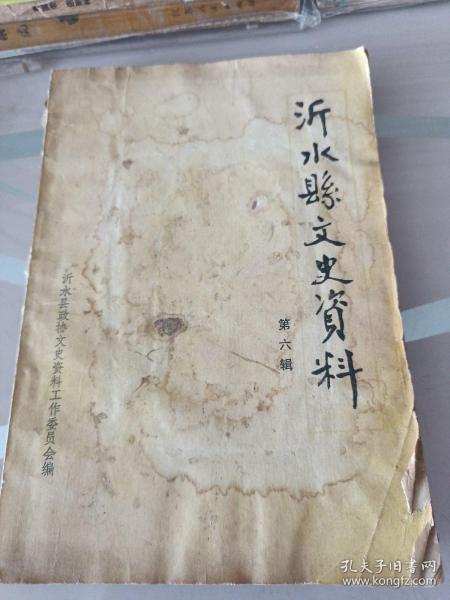 沂水縣文史資料
第六辑
沂水县政协文史资料工作委员会编
孔夫子旧书网
www.kongfz.com